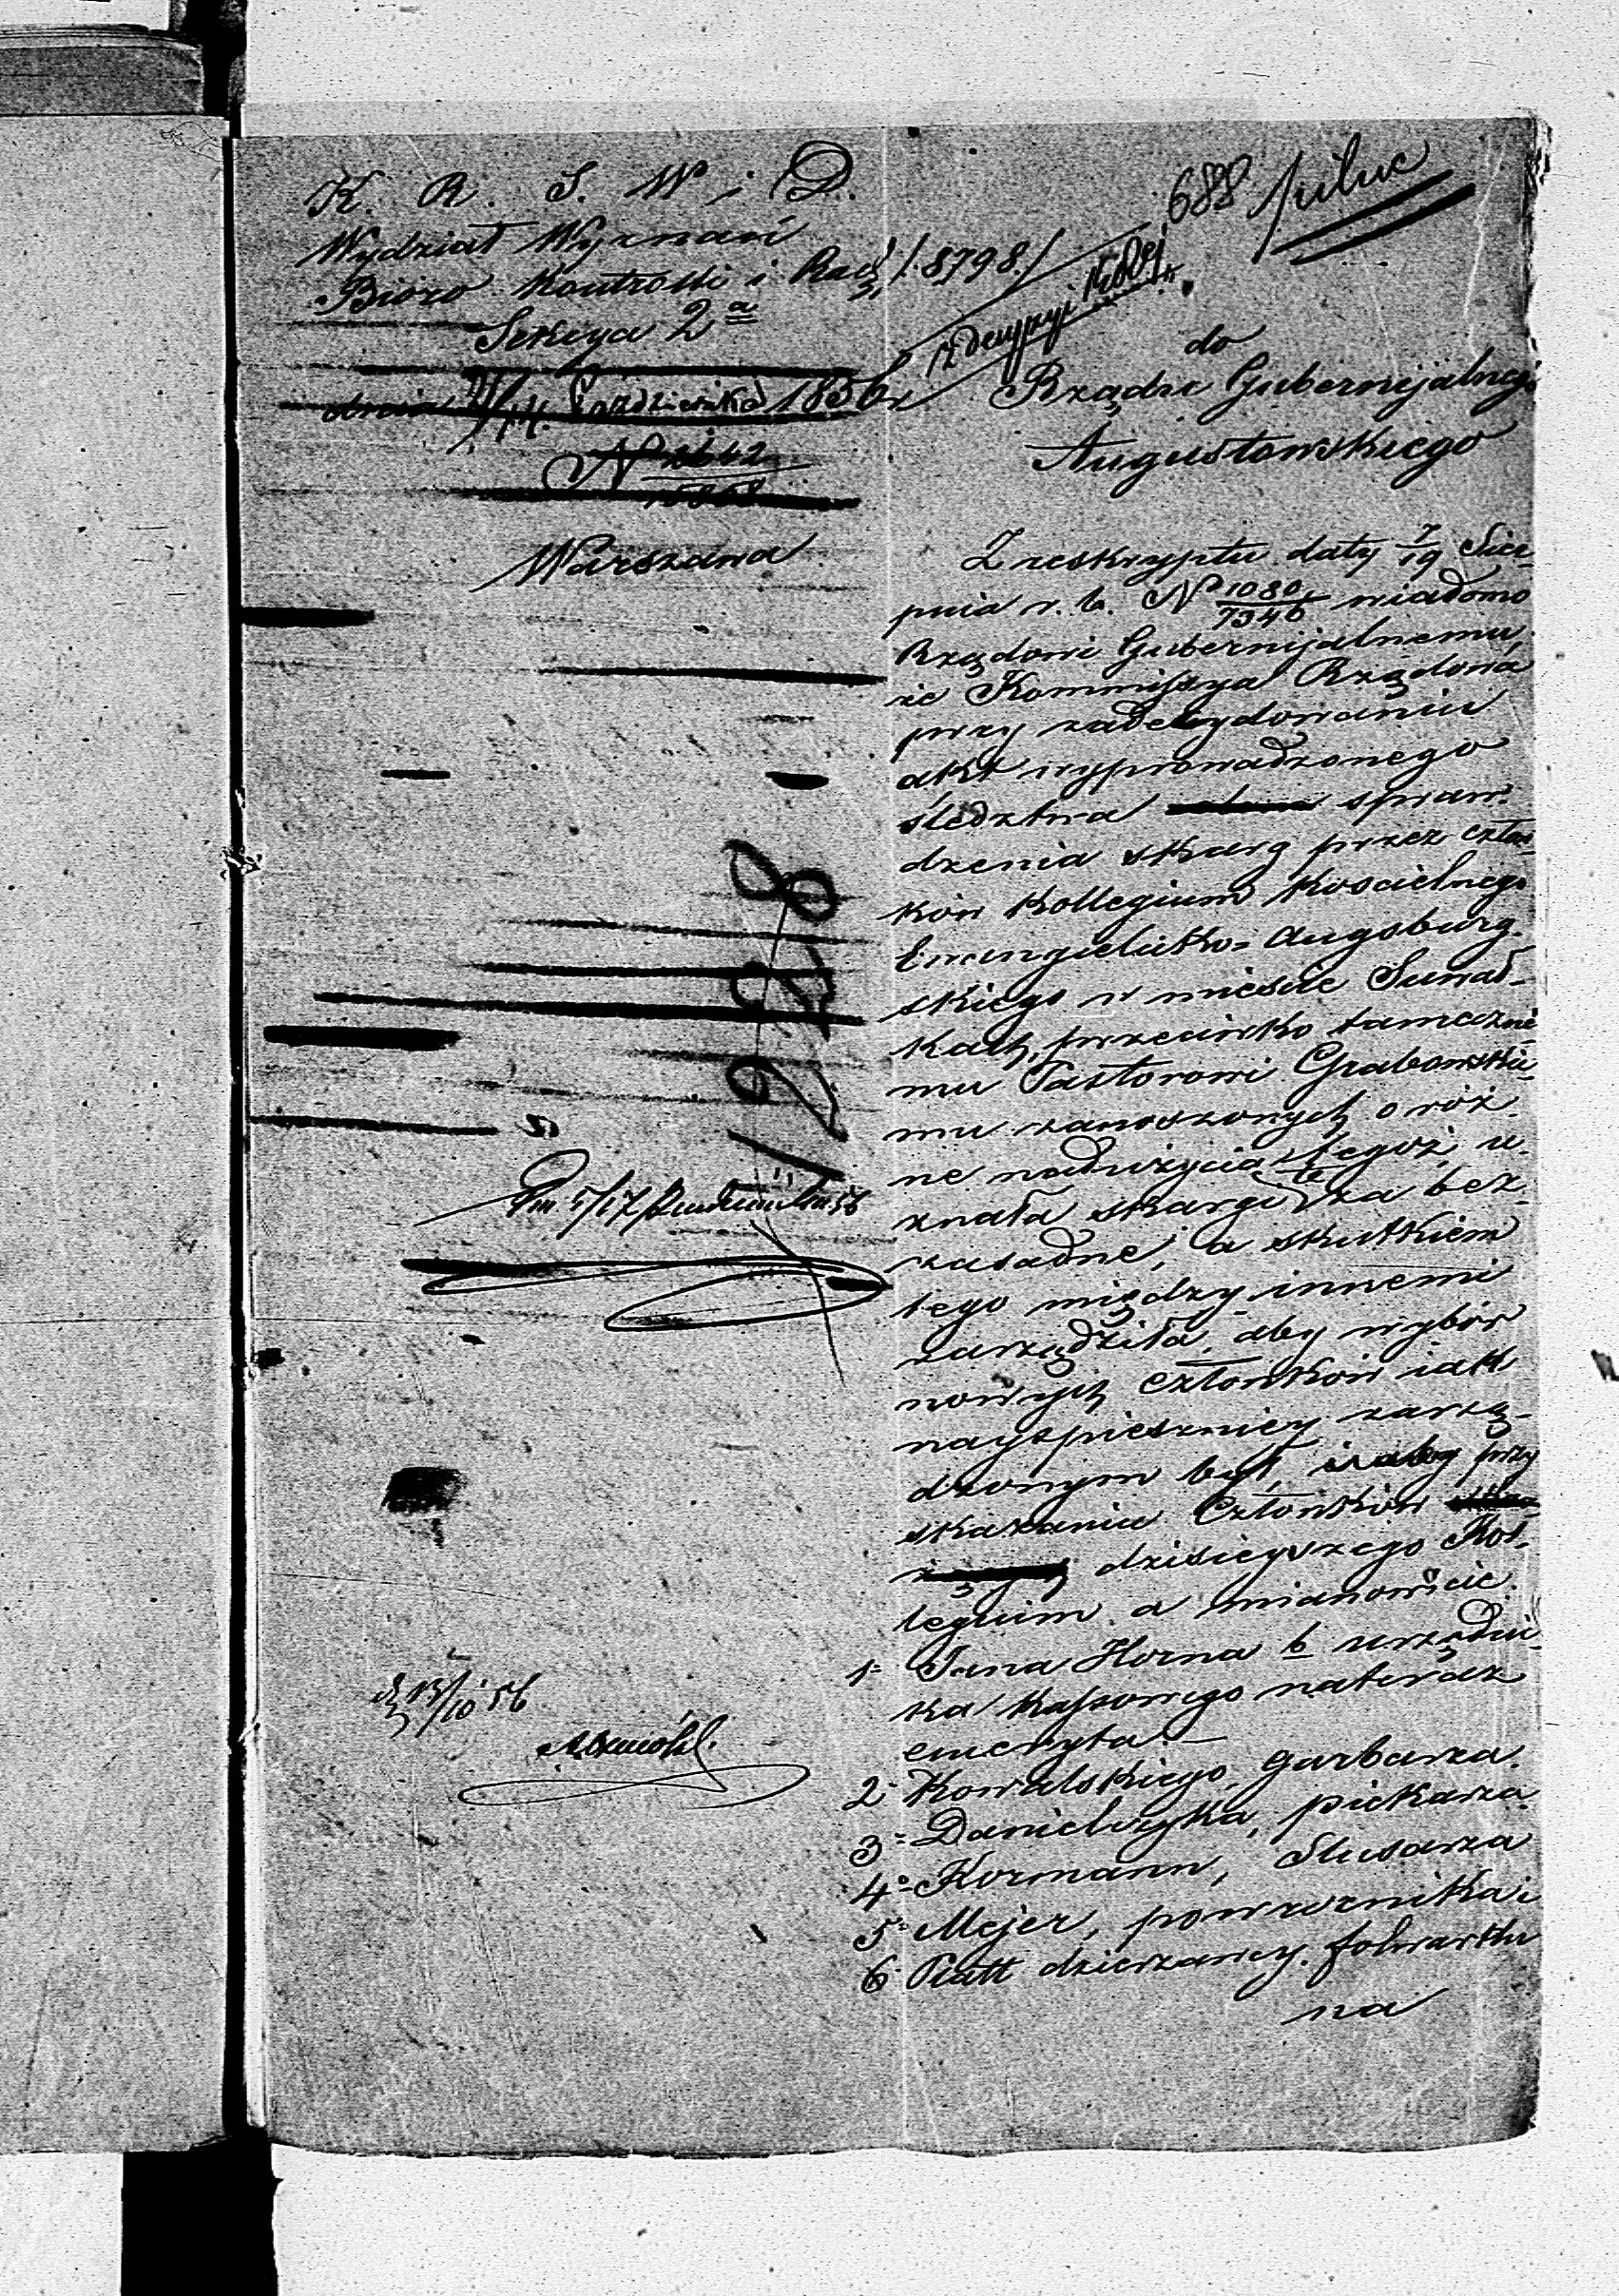 K. R. S. W i D.
Wydział Wyznań
Bióro Kontrolli i Rach /:8798:/
Sekcya 2a
dnia 2/14. Października 1856 r
N 2642
Warszawa
688 pilne
z decyzyi
do
Rządu Gubernijalnego
Augustowskiego
Z reskryptu daty 7/19 Sier-
pnia r. b. N 1080/7346 wiadomo
Rządowi Gubernijalnemu,
że Kommissya Rządowa
przy zadecydowaniu
akt wyprowadzonego
śledztwa spraw-
dzenia skarg przez człon-
ków Kollegium Kościelnego
Ewangielicko-Augsburg-
skiego w mieście Suwał-
kach, przeciwko tameczne-
mu Pastorowi Grabowskie-
mu zanoszonych o róż-
ne nadużycia tegoż, u-
znała skargi te za bez-
zasadne, a skutkiem
tego między innemi
zarządziła, aby wybór
nowych członków iak
nayspieszniey zarzą-
dzonym był, i aby przy
skazaniu Członków
dzisieyszego Kol-
legium a mianowicie
1- Jana Horna b urzędni-
ka kassowego na teraz
emeryta.-
2- Kowalskiego, garbarza.
3- Danielczyka, piekarza
4- Kormann, Slusarza
5- Mejer, powroznika i
6- Platt dzierzawcy folwarku
na
1228
d 13/10 56